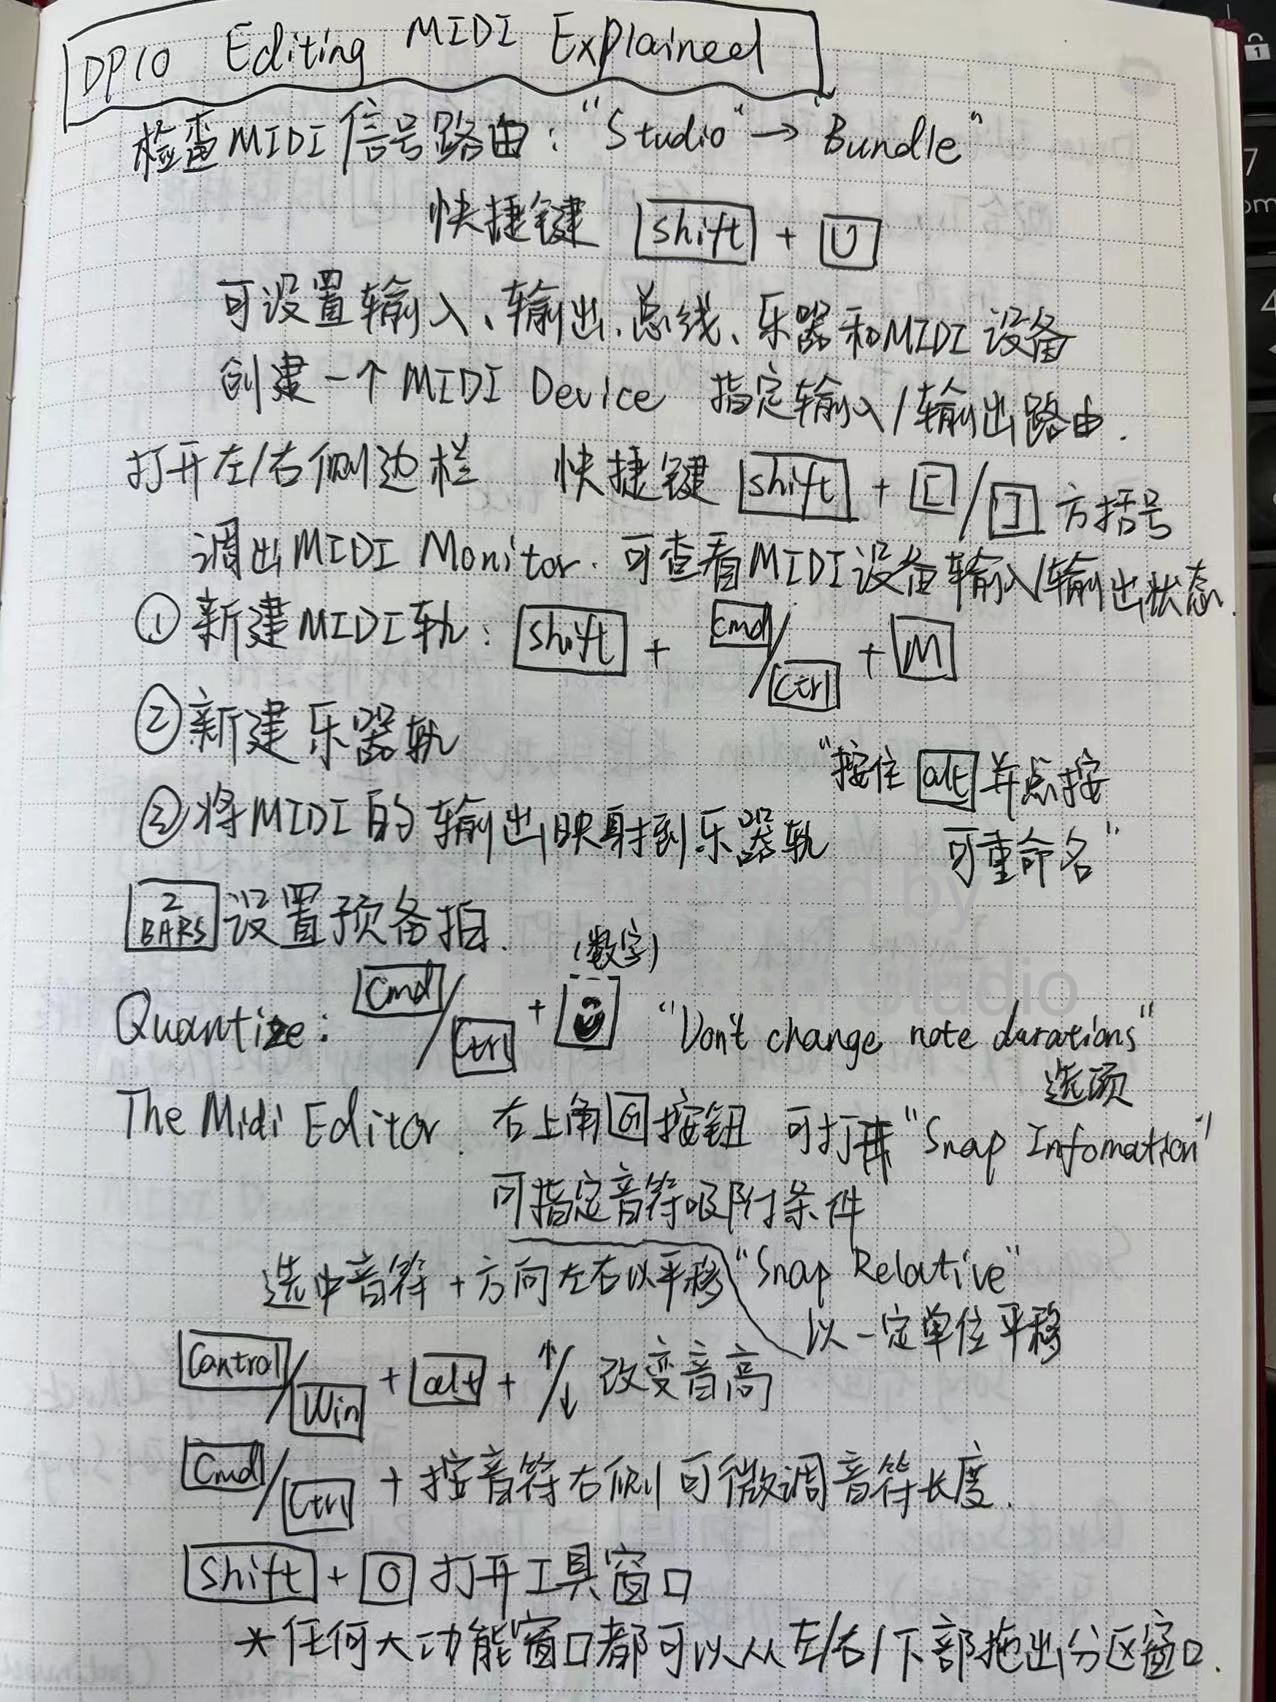 DP10 Editing MIDI Explained
检查MIDI信号路由："Studio"→"Bundle"
快捷键 shift + U
可设置输入、输出、总线、乐器和MIDI设备
创建一个MIDI Device 指定输入/输出路由.
打开左/右侧边栏 快捷键 shift + [ / ] 方括号
调出MIDI Monitor. 可查看MIDI设备输入/输出状态.
①新建MIDI轨: shift + cmd/ctrl + M
②新建乐器轨
"按住 alt 并点按
可重命名"
③将MIDI的输出映射到乐器轨
2 BARS 设置预备拍.
(数字)
Quantize: Cmd/Ctrl + "Don't change note durations"
选项
The Midi Editor. 右上角 按钮 可打开"Snap Infomation"
可指定音符吸附条件
选中音符+方向左右以平移 "Snap Relative"
以一定单位平移
Control/Win + alt + ↑/↓ 改变音高
Cmd/Ctrl + 按音符右侧可微调音符长度.
Shift + O 打开工具窗口
*任何大功能窗口都可以从左/右/下部拖出分区窗口.